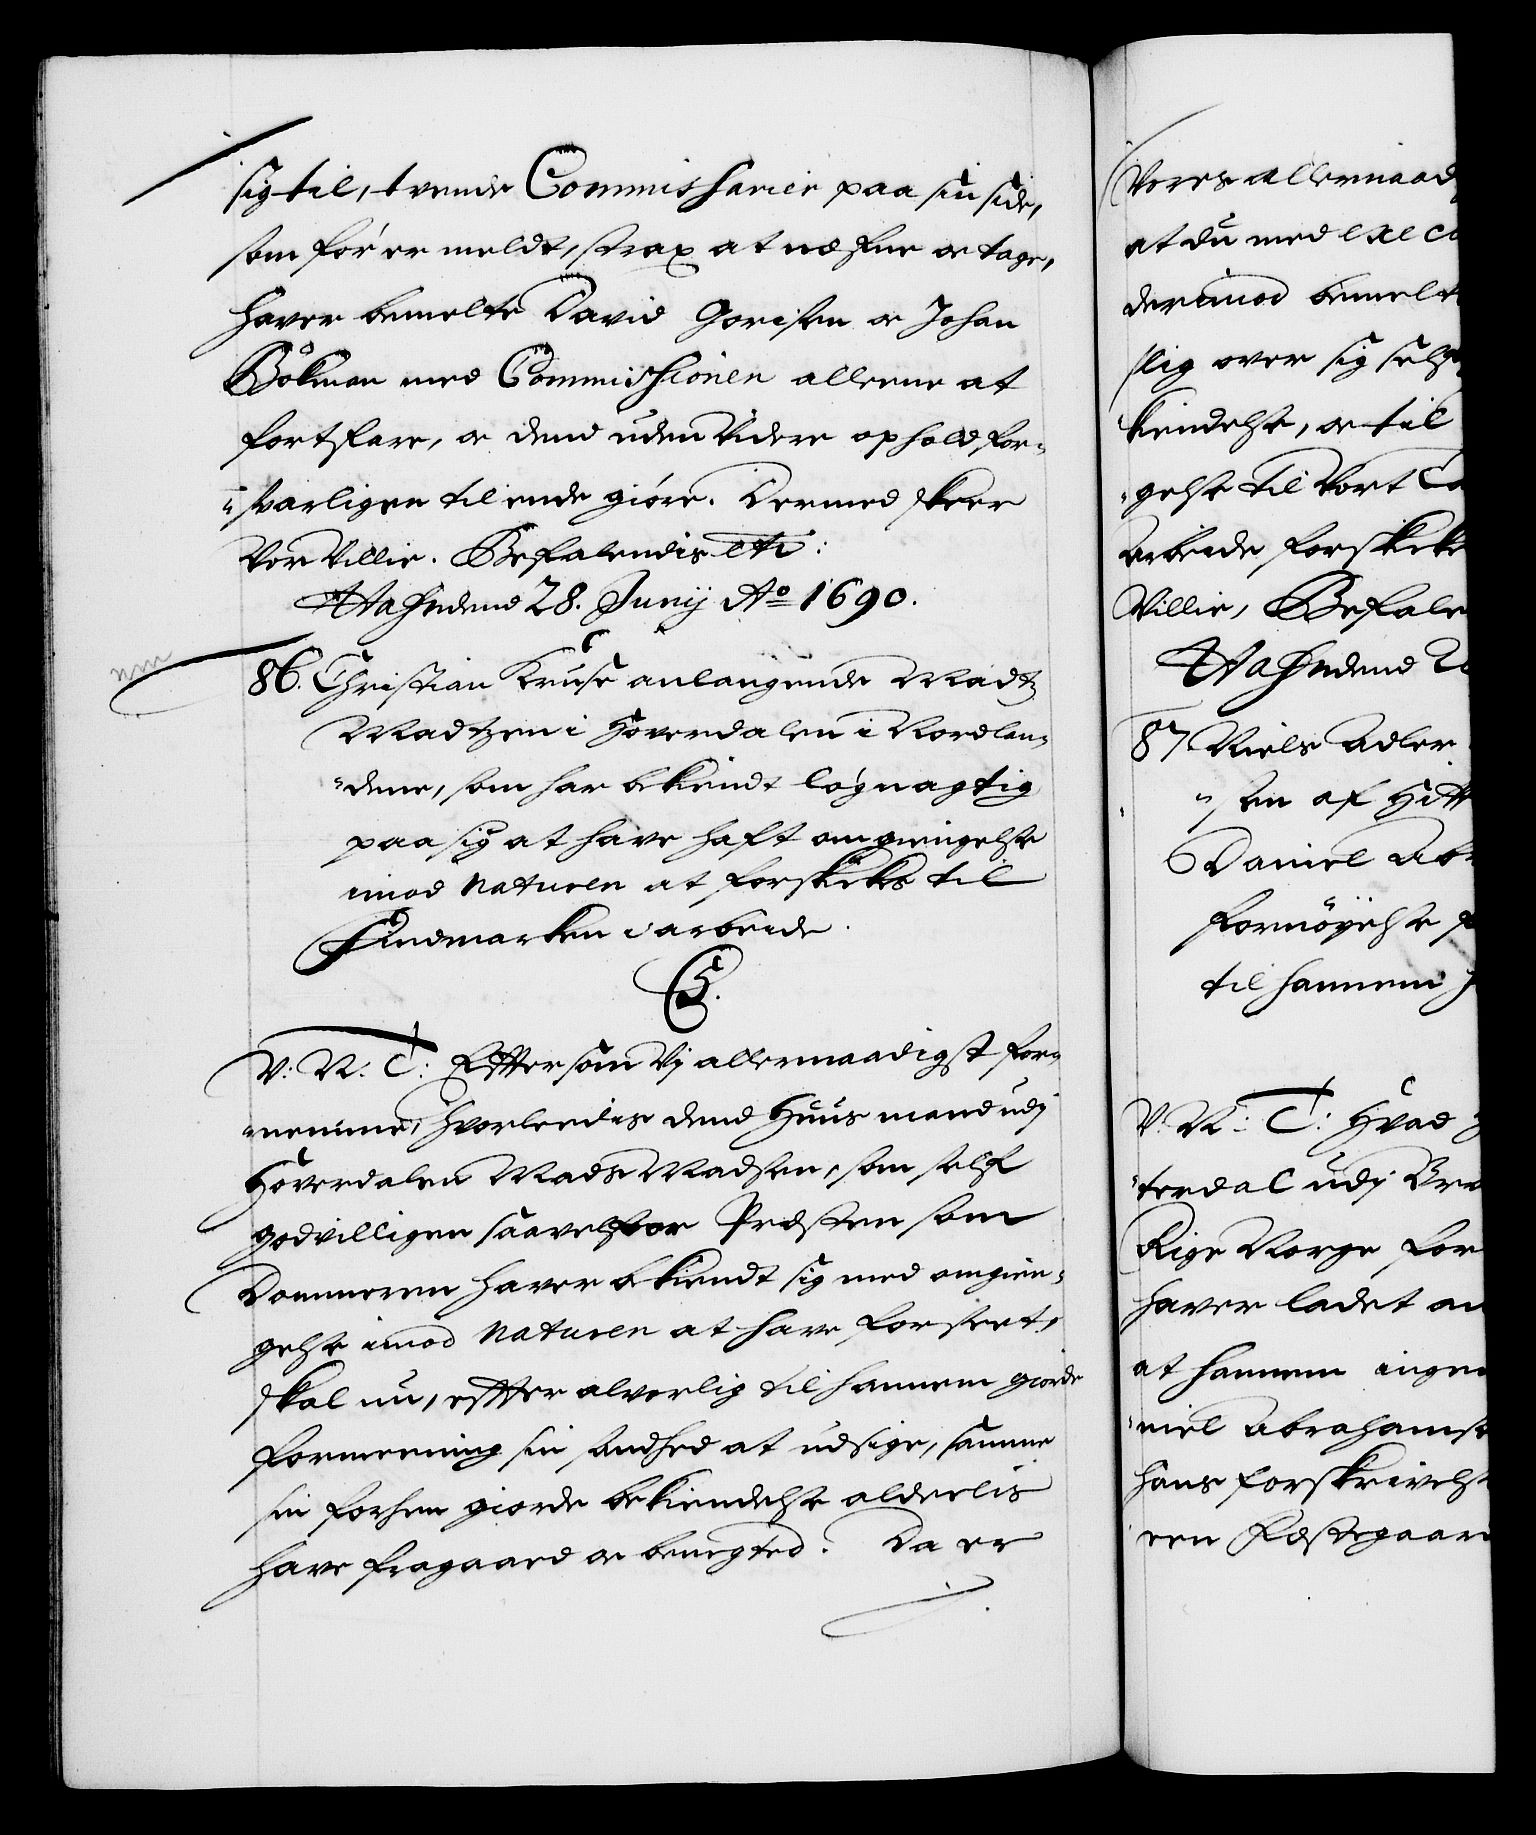 sig til, tvende Commissarier paa sin side,
som før er meldt, strax at nefne oc tage,
hafver bemelte David Gorisen oc Johan
Bökman med Commissionen alleene at
fortfare, oc dend uden Videre ophold for-
svarligen til ende giøre. Dermed skeer
Vor Villie. Befalendis etc:
Hafndend 28. Junij Ao 1690.
86. Christian Kruse anlangende Madtz
Madtzen i Hoverdalen i Nordlan-
dene, som har bekiendt løgnagtig
paa sig at have haft omgiengelse
imod Naturen at forskikes til
Findmarken i arbeide.
C5.
V: N: T: Eftersom Vj allernaadigst for-
nemme, hvorleedis dend Huusmand udj
Hoverdalen Mads Madsen, som self
godvilligen saavel for Præsten som
Dommeren hafver bekiendt sig med omgien-
gelse imod Naturen at have forseet,
skal nu, efter alvorlig til hannem giorde
formeening sin Sandhed at udsige, samme
sin forhen giorde bekiendelse aldeelis
have fragaaed oc benegted. Da er
Vores allernaad
at du med exec
derimod bemelt
slig over sig self
kiendelse, oc til
gelse til Vort
arbeide forskike
Villie, Befale
Hafndend 2
87 Niels Adler
sen af Hitt
Daniel Abr
fornøyelse
til hannem
V: N: T: Hvad
terdal udj
Rige Norge for
hafver ladet an
at hannem ingen
niel Abrahamse
hans forskrivels
een Festegaar